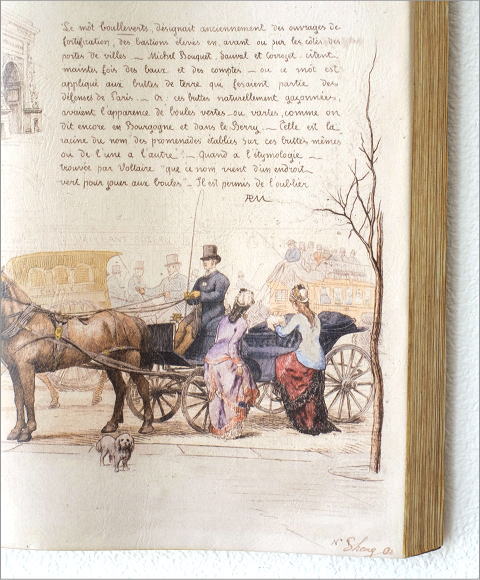 Le mot boulleverts, désignait anciennement des ouvrages de
fortification, des bastions élevés en avant ou sur les côtés des
portes de villes — Michel Bouquet, Sauval et Corrozet citent
maintes fois des baux et des comptes — où ce mot est
appliqué aux buttes de terre qui faisaient partie des
défenses de Paris — Or: ces buttes naturellement gazonnées,
avaient l'apparence de boules vertes ou vartes, comme on
dit encore en Bourgogne et dans le Berry — Telle est la
racine du nom des promenades établies sur ces buttes mêmes
ou de l'une à l'autre — Quand à l'étymologie —
trouvée par Voltaire "que ce nom vient d'un endroit
vert pour jouer aux boules" — Il est permis de l'oublier
ÆM
N Shang